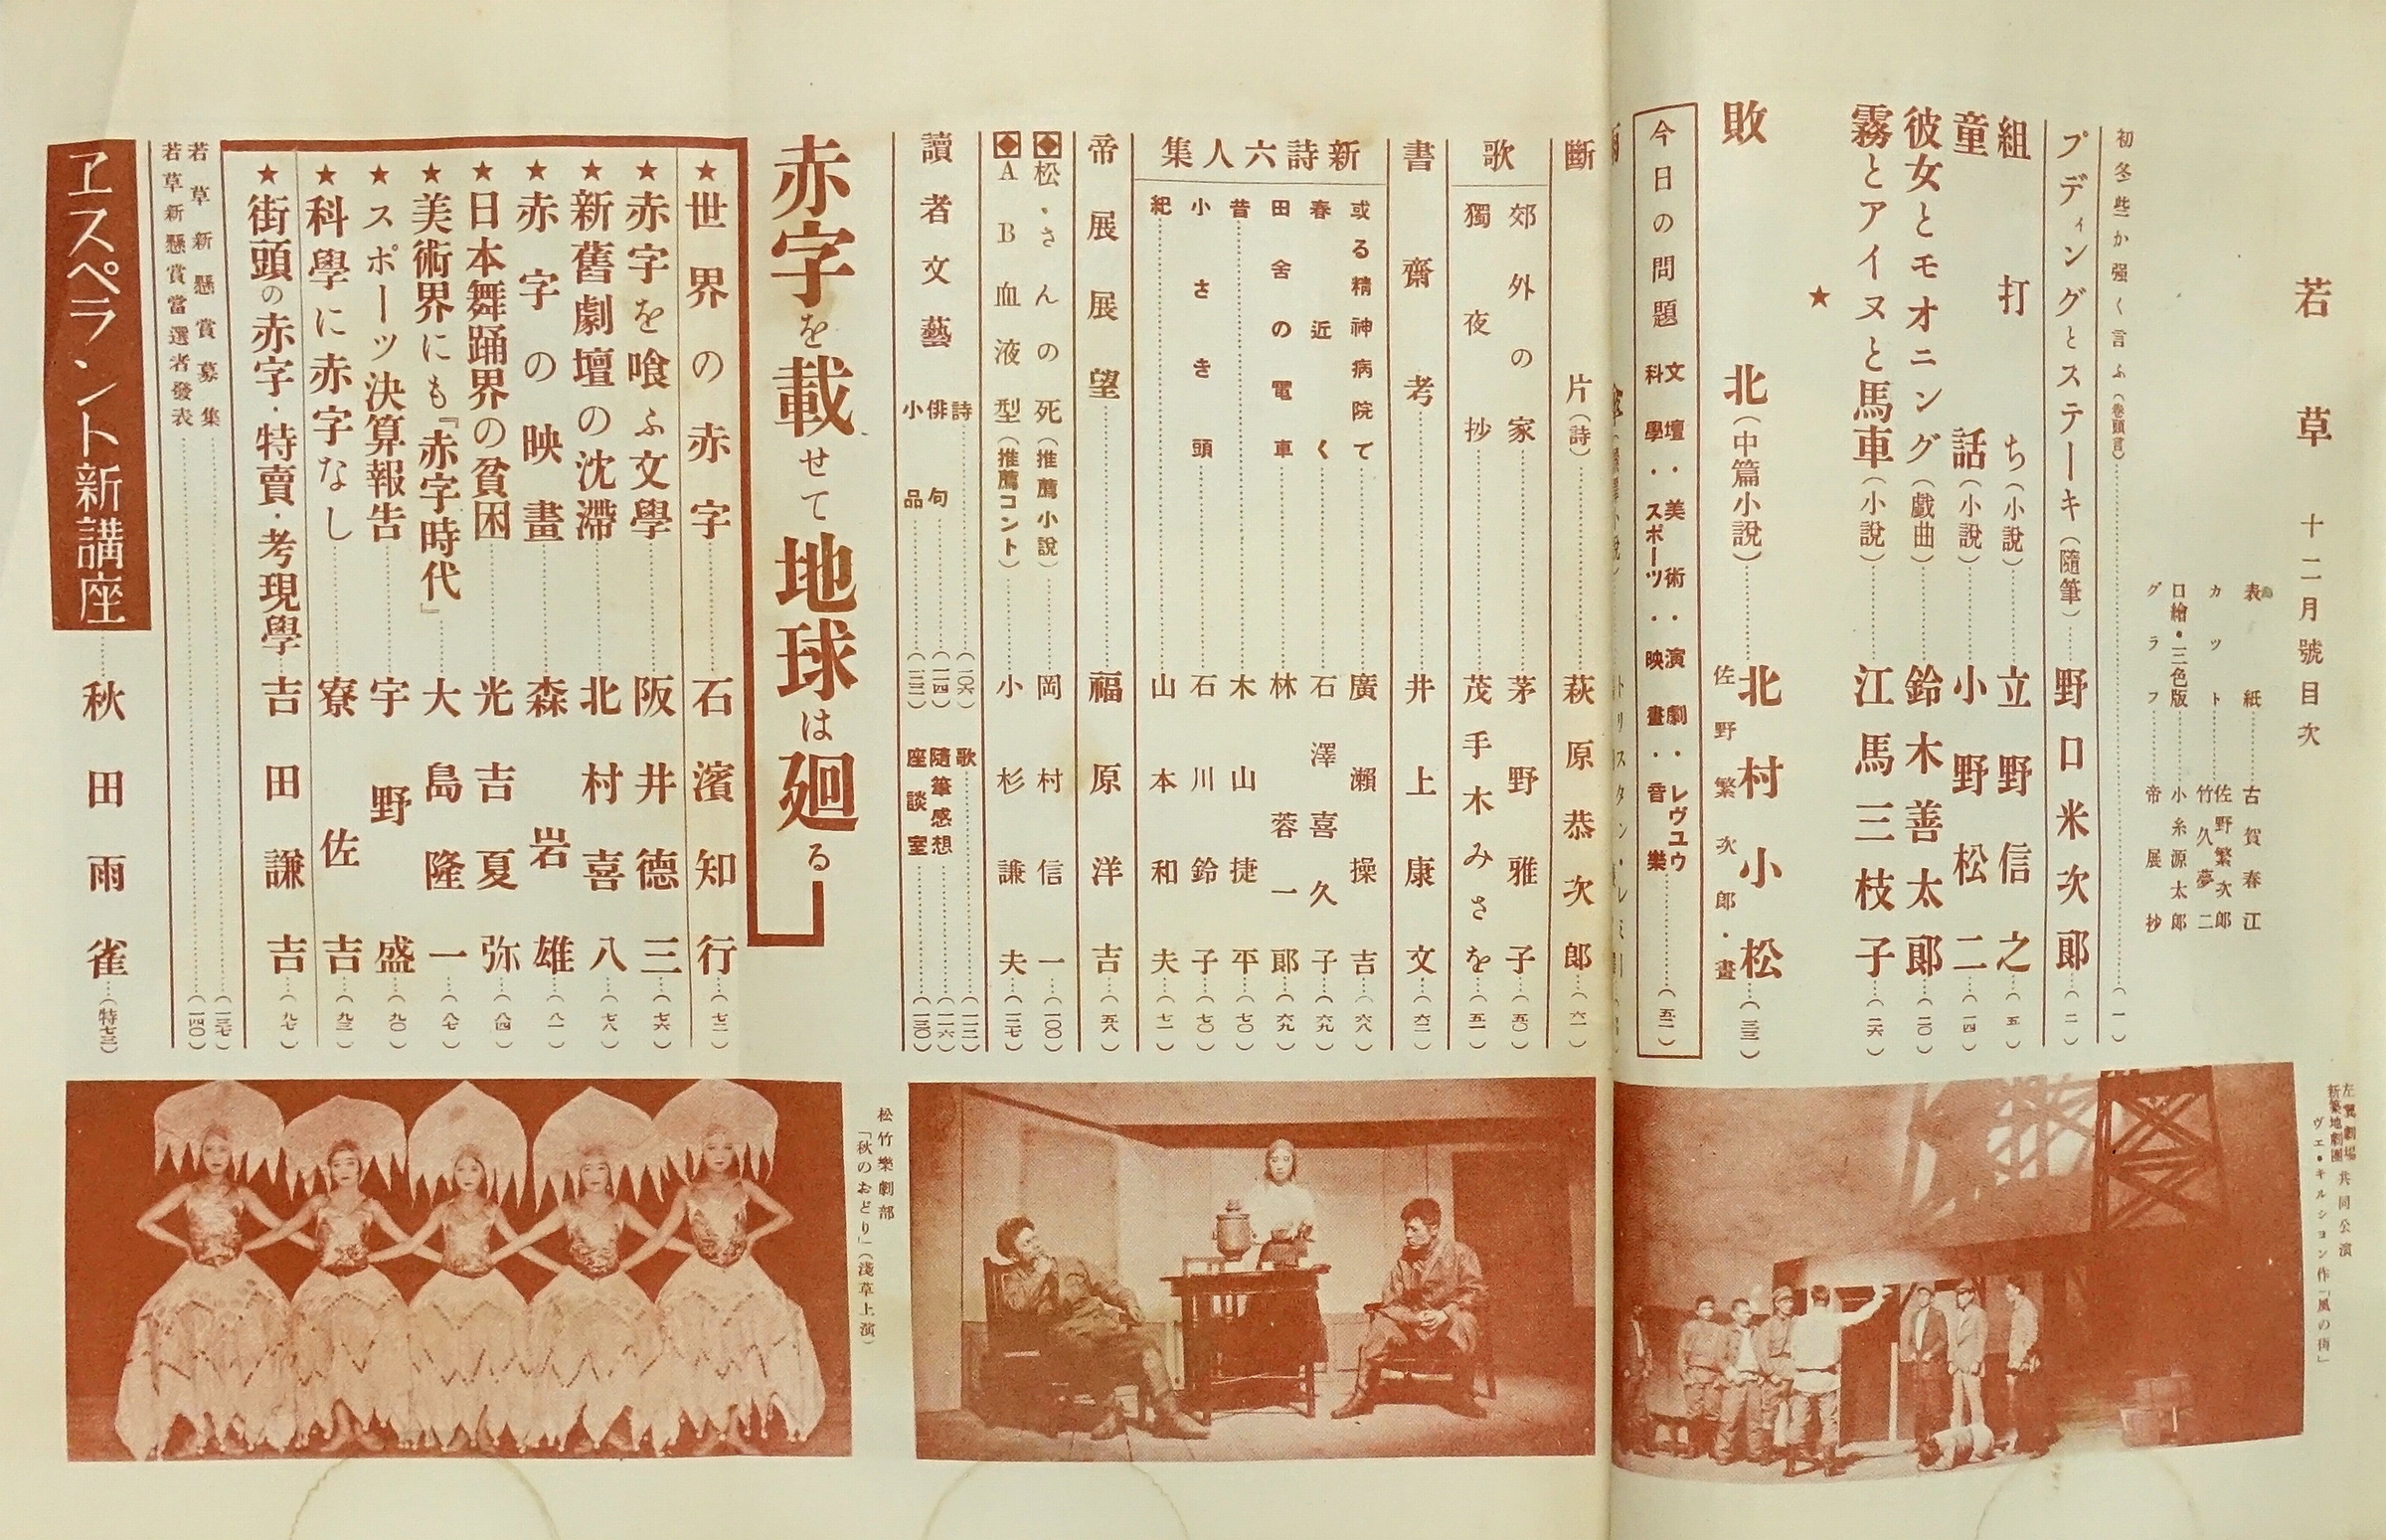 若草 十二月號目次
表紙……古賀春江
カット……佐野繁次郎
竹久夢二
口繪・三色版……小糸源太郎
グラフ……帝展抄
初冬些か强く言ふ(卷頭言)……(一)
プディングとステーキ(隨筆)……野口米次郎……(二)
組打ち(小說)……立野信之……(五)
童話(小說)……小野松二……(一四)
彼女とモオニング(戲曲)……鈴木善太郎……(二〇)
霧とアイヌと馬車(小說)……江馬三枝子……(二六)
★
敗北(中篇小說)……北村小松……(三三)
佐野繁次郎・畫
今日の問題 文壇・・美術・・演劇・・レヴユウ
科學・・スポーツ・・映畫・・音樂……(五二)
斷片(詩)……萩原恭次郎……(六一)
歌
郊外の家……茅野雅子……(五〇)
獨夜抄……茂手木みさを……(五一)
書齋考……井上康文……(六二)
新詩六人集
或る精神病院て……廣瀨操吉……(六八)
春近く……石澤喜久子……(六九)
田舍の電車……林蓉一郎……(六九)
昔……木山捷平……(七〇)
小さき頭……石川鈴子……(七〇)
紀……山本和夫……(七一)
帝展展望……福原洋吉……(五八)
松・さんの死(推薦小說)……岡村信一……(一〇〇)
A B血液型(推薦コント)……小杉謙夫……(一二七)
讀者文藝
詩……(一〇六)
俳句……(一一四)
小品……(一二二)
歌……(一一二)
隨筆感想……(一一六)
座談室……(一三〇)
赤字を載せて地球は廻る
★世界の赤字……石濱知行……(七二)
★赤字を喰ふ文學……阪井德三……(七六)
★新舊劇壇の沈滯……北村喜八……(七八)
★赤字の映畫……森岩雄……(八一)
★日本舞踊界の貧困……光吉夏弥……(八四)
★美術界にも『赤字時代』……大島隆一……(八七)
★スポーツ決算報告……宇野盛……(九〇)
★科學に赤字なし……寮佐吉……(九三)
★街頭の赤字・特賣・考現學……吉田謙吉……(九七)
若草新懸賞募集……(一三七)
若草新懸賞當選者發表……(一四〇)
ヱスペラント新講座……秋田雨雀……(特七三)
左翼劇場
新築地劇團 共同公演
ヴエ・キルシヨン作「風の街」
松竹樂劇部
「秋のおどり」(淺草上演)